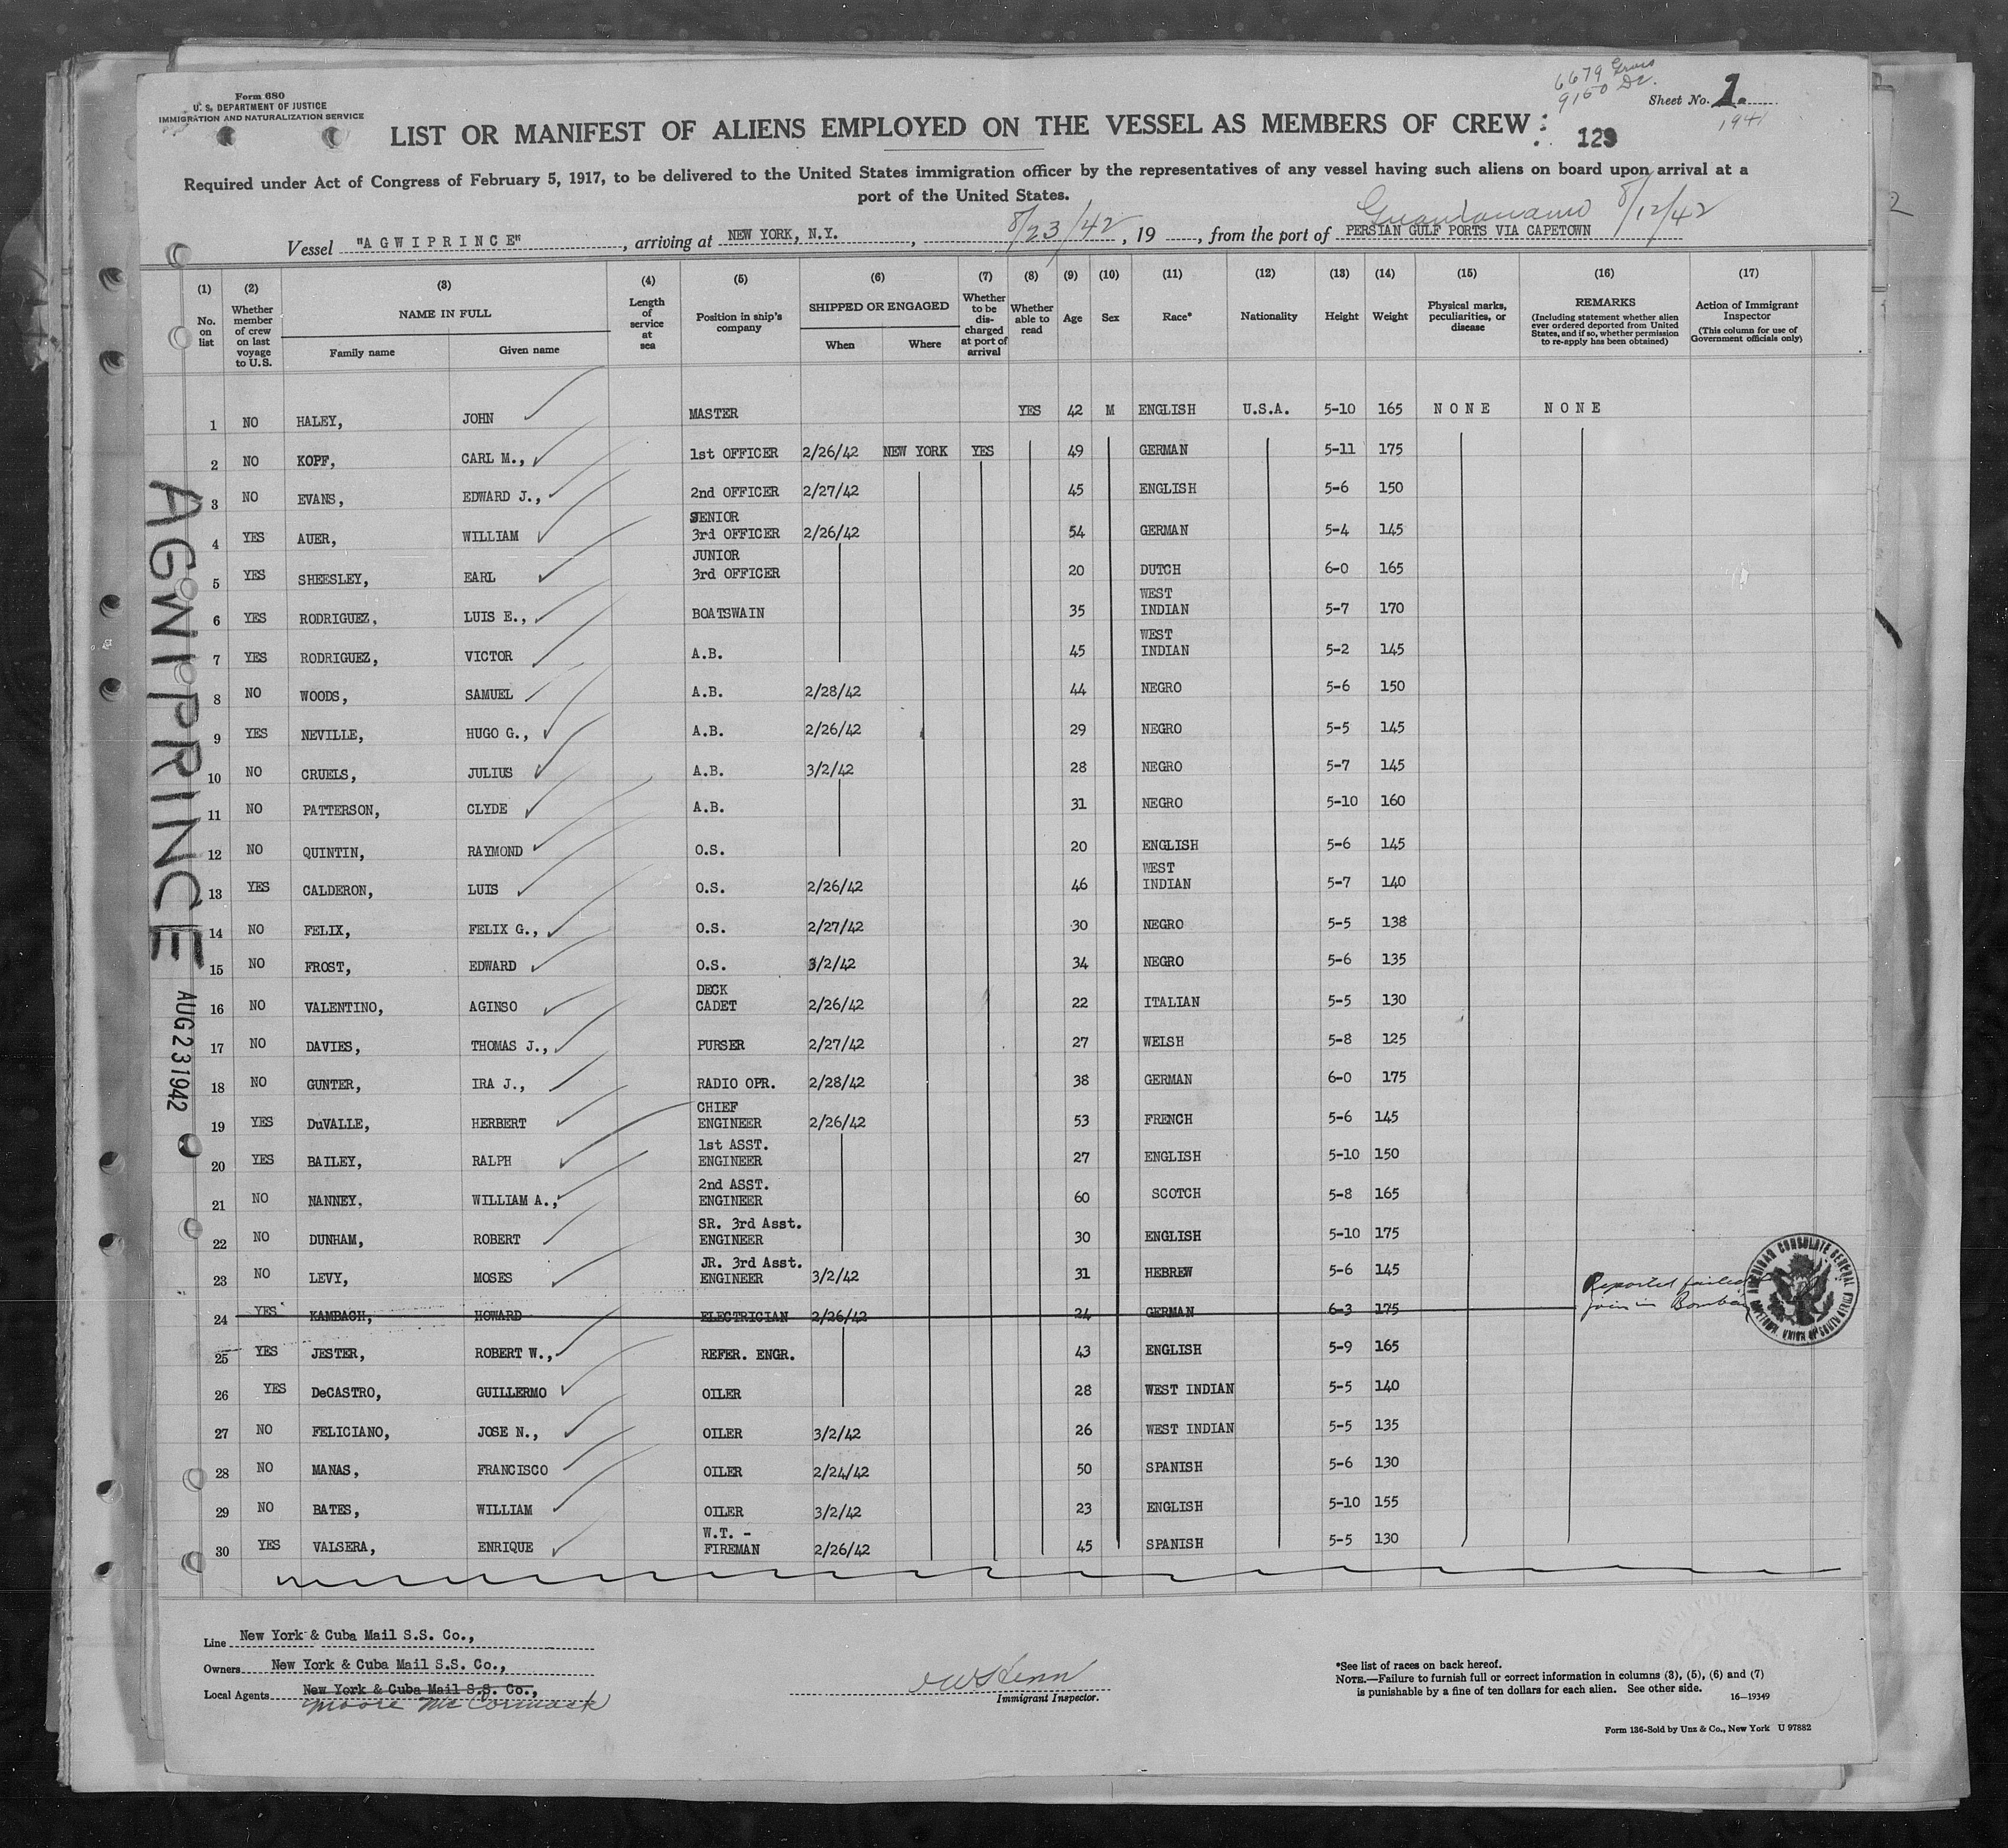 Form 680
U. S. DEPARTMENT OF JUSTICE
IMMIGRATION AND NATURALIZATION SERVICE
6679 Gross
9160 DW.
Sheet No. 1
1941
LIST OR MANIFEST OF ALIENS EMPLOYED ON THE VESSEL AS MEMBERS OF CREW
129
Required under Act of Congress of February 5, 1917, to be delivered to the United States immigration officer by the representatives of any vessel having such aliens on board upon arrival at a
port of the United States.
Guantanamo 8/12/42
Vessel "AGWIPRINCE", arriving at NEW YORK, N.Y., 8/23/42, 19, from the port of PERSIAN GULF PORTS VIA CAPETOWN
(1) No. on list
(2) Whether member of crew on last voyage to U.S.
(3) NAME IN FULL Family name Given name
(4) Length of service at sea
(5) Position in ship's company
(6) SHIPPED OR ENGAGED When Where
(7) Whether to be discharged at port of arrival
(8) Whether able to read
(9) Age
(10) Sex
(11) Race*
(12) Nationality
(13) Height
(14) Weight
(15) Physical marks, peculiarities, or disease
(16) REMARKS (Including statement whether alien ever ordered deported from United States, and if so, whether permission to re-apply has been obtained)
(17) Action of Immigrant Inspector (This column for use of Government officials only)
1 NO HALEY, JOHN MASTER YES 42 M ENGLISH U.S.A. 5-10 165 NONE NONE
2 NO KOPF, CARL M., 1st OFFICER 2/26/42 NEW YORK YES 49 GERMAN 5-11 175
3 NO EVANS, EDWARD J., 2nd OFFICER 2/27/42 45 ENGLISH 5-6 150
4 YES AUER, WILLIAM SENIOR 3rd OFFICER 2/26/42 54 GERMAN 5-4 145
5 YES SHEESLEY, EARL JUNIOR 3rd OFFICER 20 DUTCH 6-0 165
6 YES RODRIGUEZ, LUIS E., BOATSWAIN 35 WEST INDIAN 5-7 170
7 YES RODRIGUEZ, VICTOR A.B. 45 WEST INDIAN 5-2 145
8 NO WOODS, SAMUEL A.B. 2/28/42 44 NEGRO 5-6 150
9 YES NEVILLE, HUGO G., A.B. 2/26/42 29 NEGRO 5-5 145
10 NO CRUELS, JULIUS A.B. 3/2/42 28 NEGRO 5-7 145
11 NO PATTERSON, CLYDE A.B. 31 NEGRO 5-10 160
12 NO QUINTIN, RAYMOND O.S. 20 ENGLISH 5-6 145
13 YES CALDERON, LUIS O.S. 2/26/42 46 WEST INDIAN 5-7 140
14 NO FELIX, FELIX G., O.S. 2/27/42 30 NEGRO 5-5 138
15 NO FROST, EDWARD O.S. 3/2/42 34 NEGRO 5-6 135
16 NO VALENTINO, AGINSO DECK CADET 2/26/42 22 ITALIAN 5-5 130
17 NO DAVIES, THOMAS J., PURSER 2/27/42 27 WELSH 5-8 125
18 NO GUNTER, IRA J., RADIO OPR. 2/28/42 38 GERMAN 6-0 175
19 YES DuVALLE, HERBERT CHIEF ENGINEER 2/26/42 53 FRENCH 5-6 145
20 YES BAILEY, RALPH 1st ASST. ENGINEER 27 ENGLISH 5-10 150
21 NO NANNEY, WILLIAM A., 2nd ASST. ENGINEER 60 SCOTCH 5-8 165
22 NO DUNHAM, ROBERT SR. 3rd Asst. ENGINEER 30 ENGLISH 5-10 175
23 NO LEVY, MOSES JR. 3rd Asst. ENGINEER 3/2/42 31 HEBREW 5-6 145
24 YES KAMBACH, HOWARD ELECTRICIAN 2/26/42 24 GERMAN 6-3 175 Reported failed join in Bombay
25 YES JESTER, ROBERT W., REFER. ENGR. 43 ENGLISH 5-9 165
26 YES DeCASTRO, GUILLERMO OILER 28 WEST INDIAN 5-5 140
27 NO FELICIANO, JOSE N., OILER 3/2/42 26 WEST INDIAN 5-5 135
28 NO MANAS, FRANCISCO OILER 2/24/42 50 SPANISH 5-6 130
29 NO BATES, WILLIAM OILER 3/2/42 23 ENGLISH 5-10 155
30 YES VALSERA, ENRIQUE W.T. - FIREMAN 2/26/42 45 SPANISH 5-5 130
AMERICAN CONSULATE GENERAL CAPETOWN, UNION OF SOUTH AFRICA
AGWIPRINCE
AUG 23 1942
Line New York & Cuba Mail S.S. Co.,
Owners New York & Cuba Mail S.S. Co.,
Local Agents New York & Cuba Mail S.S. Co.,
Moore McCormack
Immigrant Inspector.
*See list of races on back hereof.
NOTE.—Failure to furnish full or correct information in columns (3), (5), (6) and (7)
is punishable by a fine of ten dollars for each alien. See other side.
16—19349
Form 136-Sold by Unz & Co., New York U 97882
2